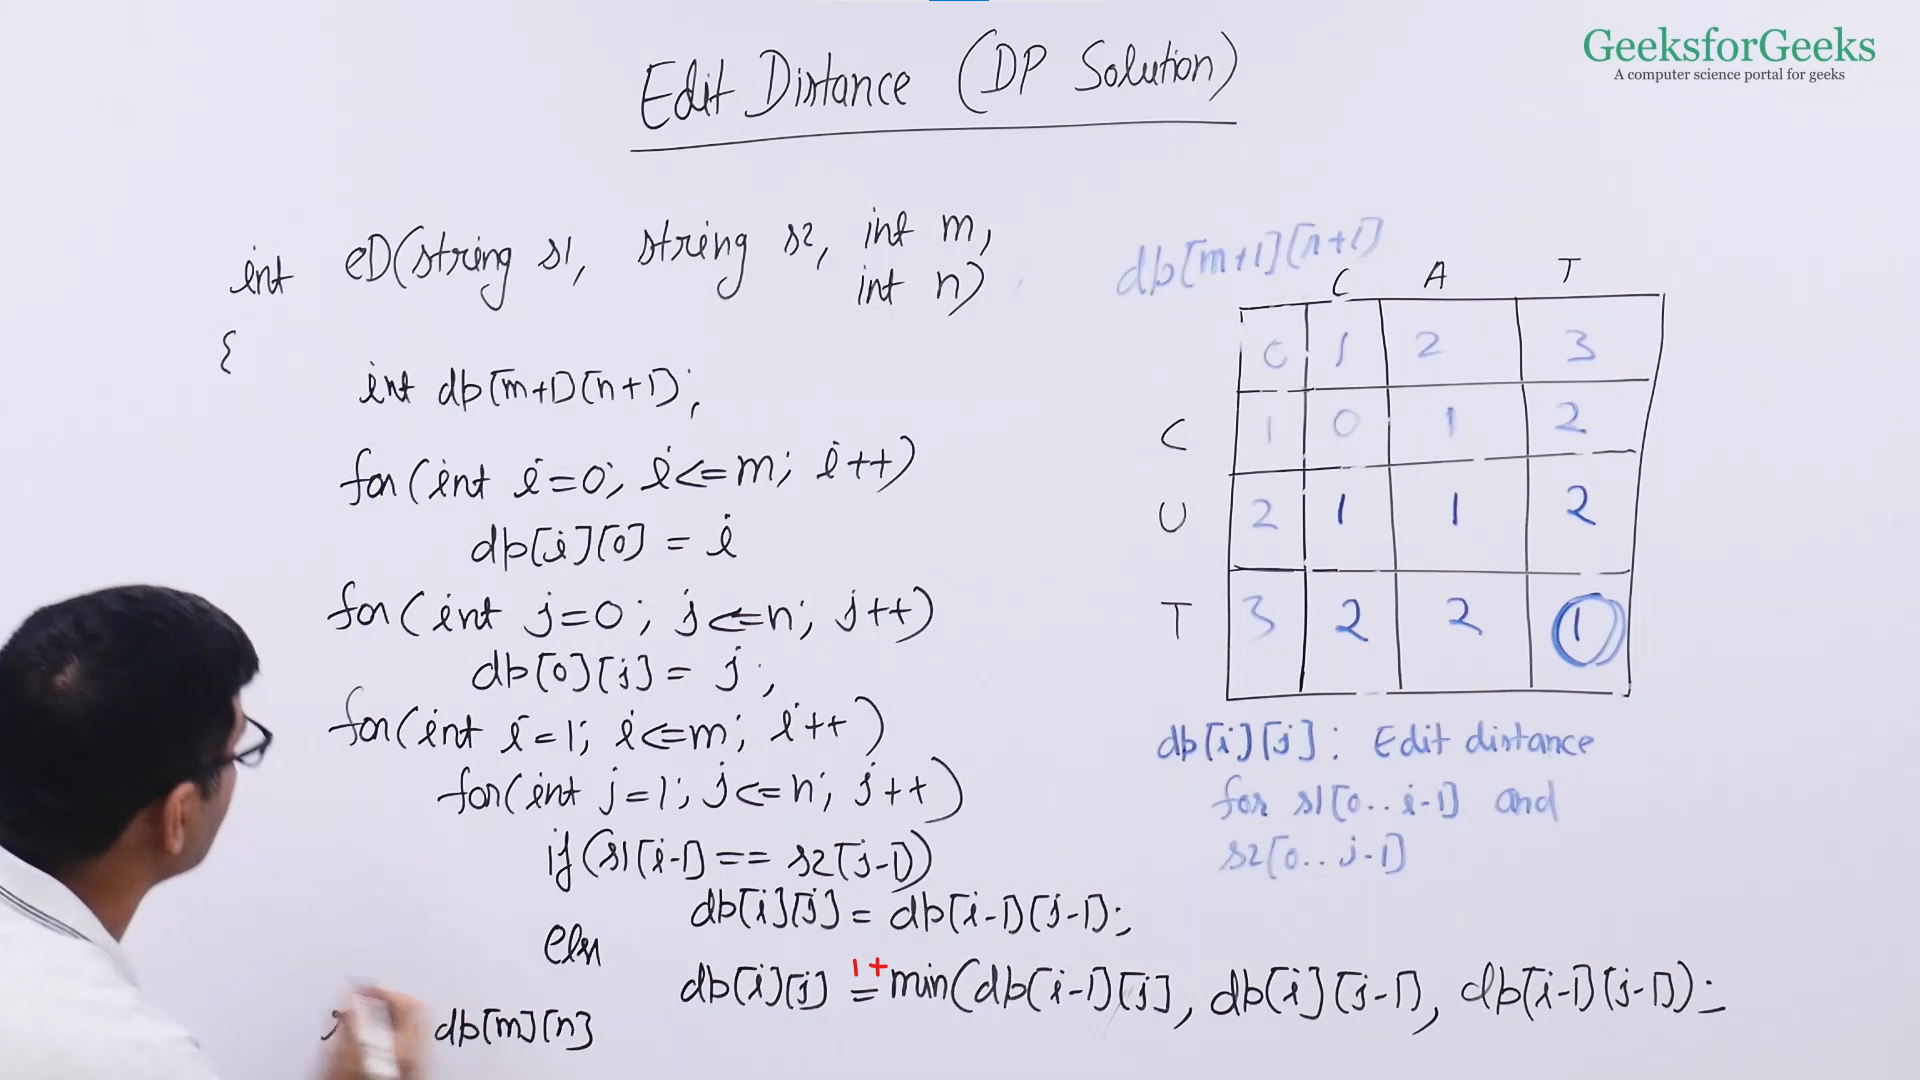 Edit Distance (DP Solution)
GeeksforGeeks
A computer science portal for geeks
int eD(string s1, string s2, int m,
int n)
{
int dp[m+1][n+1];
for(int i=0; i<=m; i++)
dp[i][0] = i
for(int j=0; j<=n; j++)
dp[0][j] = j;
for(int i=1; i<=m; i++)
for(int j=1; j<=n; j++)
if(s1[i-1] == s2[j-1])
dp[i][j] = dp[i-1][j-1];
else
dp[i][j] = 1+ min(dp[i-1][j], dp[i][j-1], dp[i-1][j-1]);
dp[m][n]
dp[m+1][n+1]
C A T
0 1 2 3
C 1 0 1 2
U 2 1 1 2
T 3 2 2 1
dp[i][j]: Edit distance
for s1[0..i-1] and
s2[0..j-1]